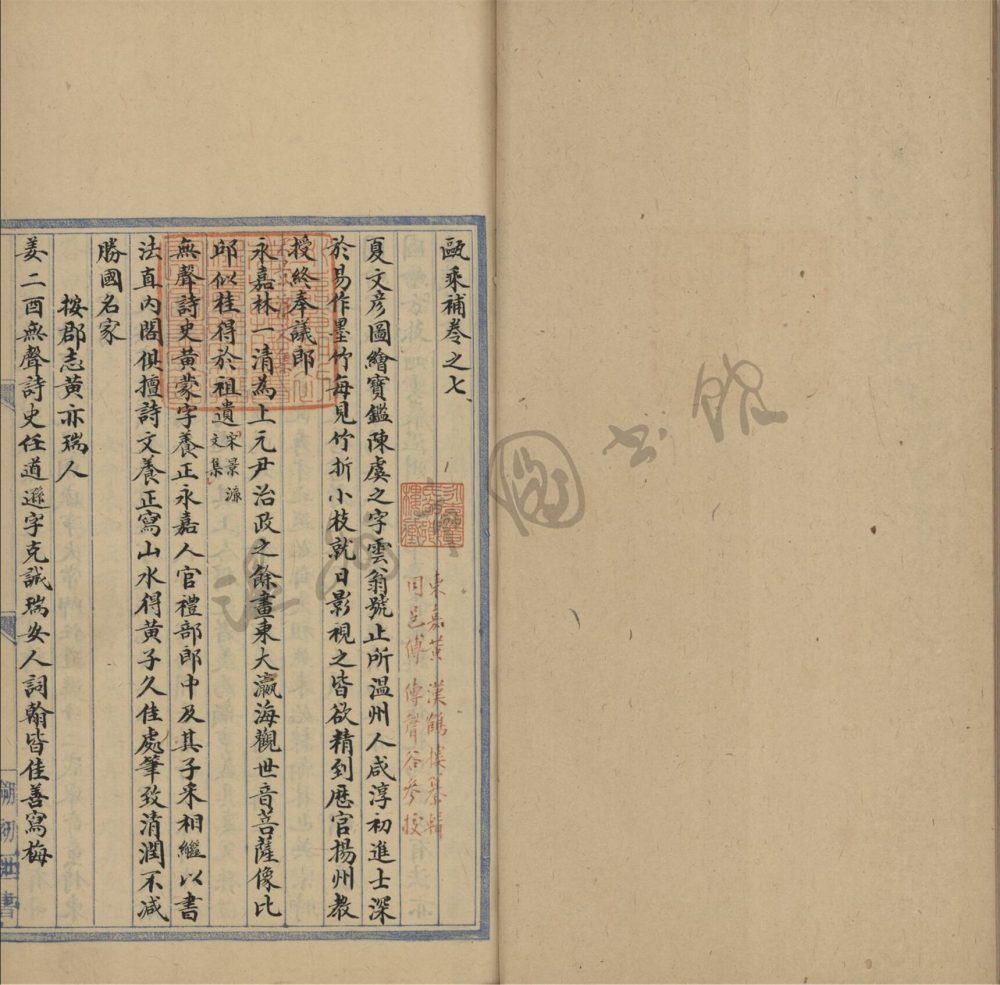 甌乘補卷之七
東嘉黃漢鶴樓纂輯
同邑傅傅聲谷參校
夏文彥圖繪寶鑑陳虞之字雲翁號止所温州人咸淳初進士深
於易作墨竹每見竹折小枝就日影視之皆欲精到歷官揚州教
授終奉議郎
永嘉林一清為上元尹治政之餘畫東大瀛海觀世音菩薩像比
邱似桂得於祖遺宋景濂文集
無聲詩史黃蒙字養正永嘉人官禮部郎中及其子釆相繼以書
法直內閣俱擅詩文養正寫山水得黃子久佳處筆致清潤不减
勝國名家
按郡志黃亦瑞人
姜二酉無聲詩史任道遜字克誠瑞安人詞翰皆佳善寫梅
圖書館